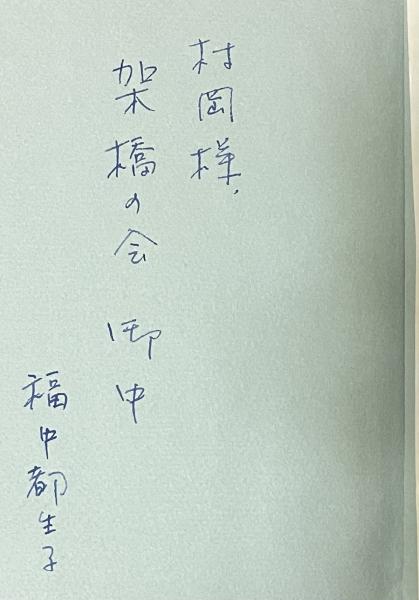 村岡様、
架橋の会 御中
福中都生子